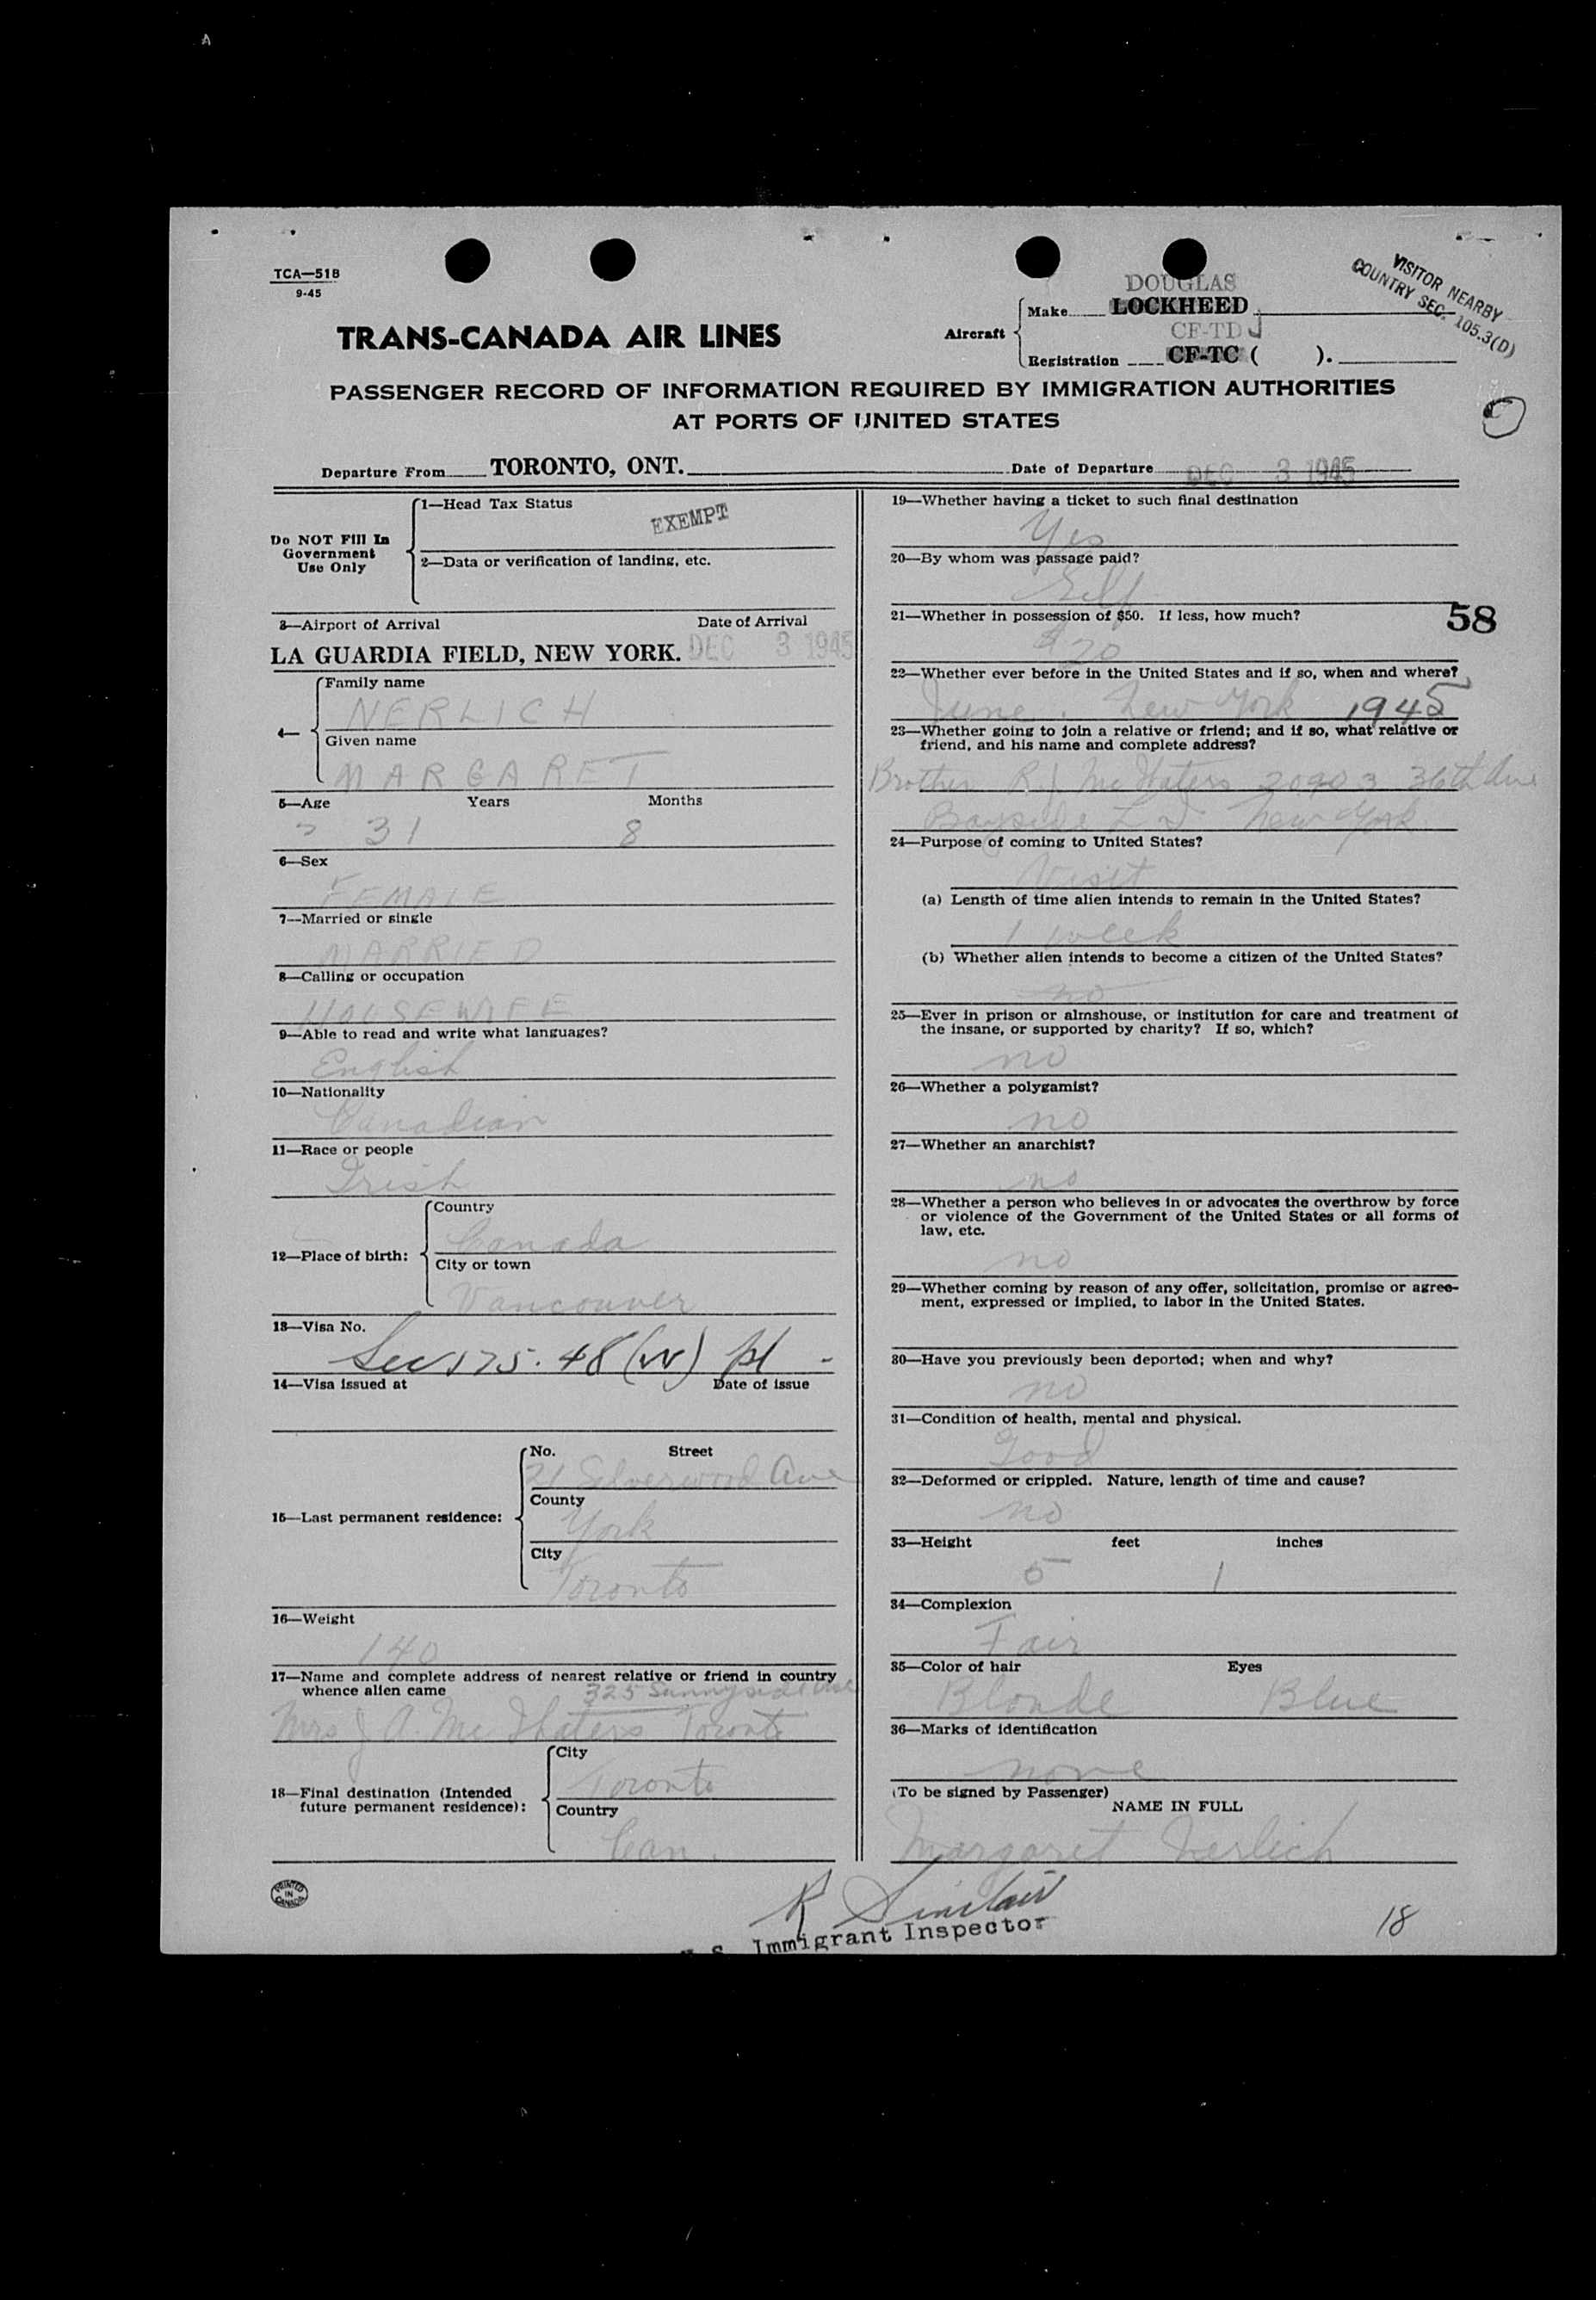 A
TCA—518
9-45
TRANS-CANADA AIR LINES
Aircraft
DOUGLAS
Make LOCKHEED
CF-TDJ
Registration CF-TC ( ).
VISITOR NEARBY
COUNTRY SEC. 105.3(D)
PASSENGER RECORD OF INFORMATION REQUIRED BY IMMIGRATION AUTHORITIES
AT PORTS OF UNITED STATES
Departure From TORONTO, ONT. Date of Departure DEC 3 1945
Do NOT Fill In
Government
Use Only
1—Head Tax Status
EXEMPT
2—Data or verification of landing, etc.
3—Airport of Arrival Date of Arrival
LA GUARDIA FIELD, NEW YORK. DEC 3 1945
4—
Family name
NERLICH
Given name
MARGARET
5—Age Years Months
31 8
6—Sex
FEMALE
7—Married or single
MARRIED
8—Calling or occupation
HOUSEWIFE
9—Able to read and write what languages?
English
10—Nationality
Canadian
11—Race or people
Irish
12—Place of birth:
Country
Canada
City or town
Vancouver
13—Visa No.
Sec 175.48 (W)
14—Visa issued at Date of issue
15—Last permanent residence:
No. Street
21 Silverwood Ave
County
York
City
Toronto
16—Weight
140
17—Name and complete address of nearest relative or friend in country
whence alien came
325 Sunnyside Ave
Mrs J A. Toronto
18—Final destination (Intended
future permanent residence):
City
Toronto
Country
Can.
19—Whether having a ticket to such final destination
Yes
20—By whom was passage paid?
Self
21—Whether in possession of $50. If less, how much?
58
$20
22—Whether ever before in the United States and if so, when and where?
June. New York 1945
23—Whether going to join a relative or friend; and if so, what relative or
friend, and his name and complete address?
Brother R. J. 36th Ave
Bayside L I New York
24—Purpose of coming to United States?
Visit
(a) Length of time alien intends to remain in the United States?
1 week
(b) Whether alien intends to become a citizen of the United States?
no
25—Ever in prison or almshouse, or institution for care and treatment of
the insane, or supported by charity? If so, which?
no
26—Whether a polygamist?
no
27—Whether an anarchist?
no
28—Whether a person who believes in or advocates the overthrow by force
or violence of the Government of the United States or all forms of
law, etc.
no
29—Whether coming by reason of any offer, solicitation, promise or agree-
ment, expressed or implied, to labor in the United States.
30—Have you previously been deported; when and why?
no
31—Condition of health, mental and physical.
Good
32—Deformed or crippled. Nature, length of time and cause?
no
33—Height feet inches
5 1
34—Complexion
Fair
35—Color of hair Eyes
Blonde Blue
36—Marks of identification
none
(To be signed by Passenger)
NAME IN FULL
Margaret Nerlich
PRINTED
IN
CANADA
R Sinclair
Immigrant Inspector
18